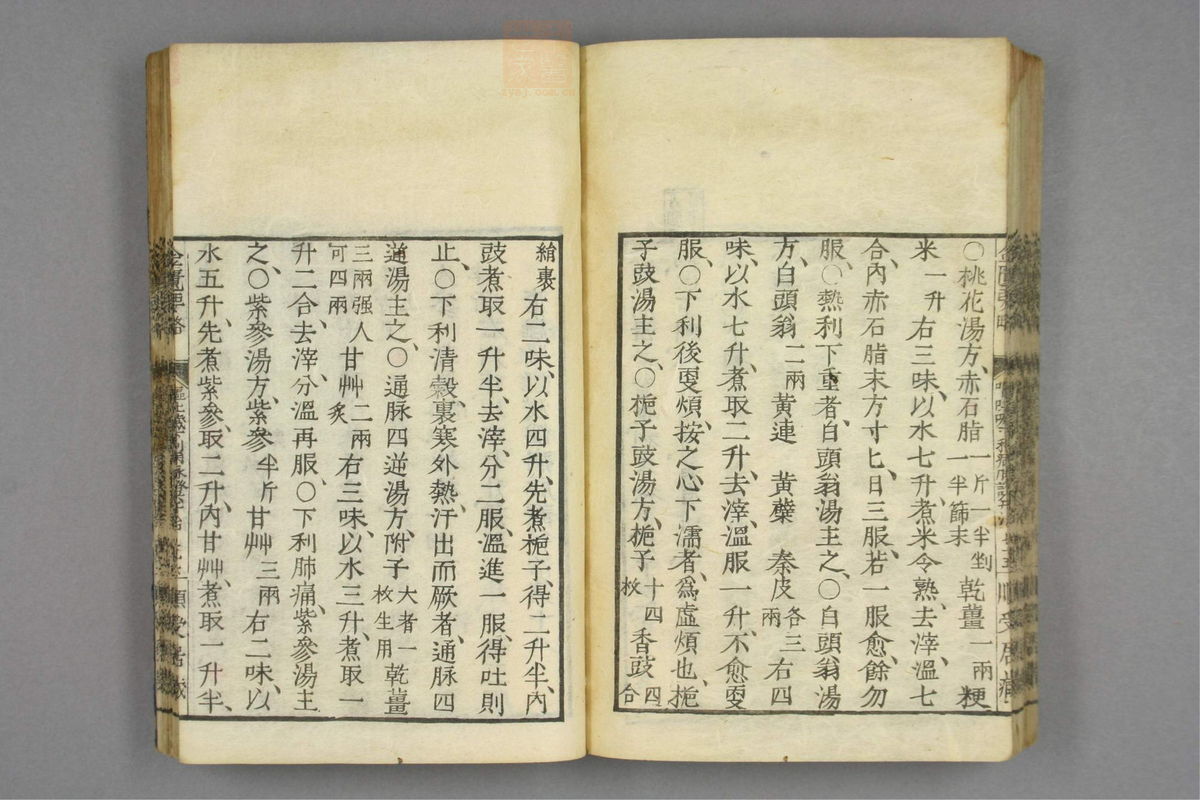 ○桃花湯方、赤石脂一斤一半剉一半篩末乾薑一兩粳
米一升右三味、以水七升、煮米令熟、去滓、溫七
合、內赤石脂末方寸匕、日三服、若一服愈、餘勿
服、○熱利下重者、白頭翁湯主之、○白頭翁湯
方、白頭翁二兩黄連 黄蘗 秦皮各三兩右四
味、以水七升、煮取二升、去滓、溫服一升、不愈更
服、○下利後更煩、按之心下濡者、爲虛煩也、梔
子豉湯主之、○梔子豉湯方、梔子十四枚香豉四合
綃裹右二味、以水四升、先煮梔子、得二升半、內
豉煮取一升半、去滓、分二服、溫進一服、得吐則
止、○下利清穀、裏寒外熱、汗出而厥者、通脉四
逆湯主之、○通脉四逆湯方、附子大者一枚生用乾薑
三兩强人可四兩甘艸二兩炙右三味、以水三升、煮取一
升二合、去滓、分溫再服、○下利肺痛、紫參湯主
之、○紫參湯方、紫參半斤甘艸三兩右二味、以
水五升、先煮紫參、取二升、內甘艸、煮取一升半、
金匱要略